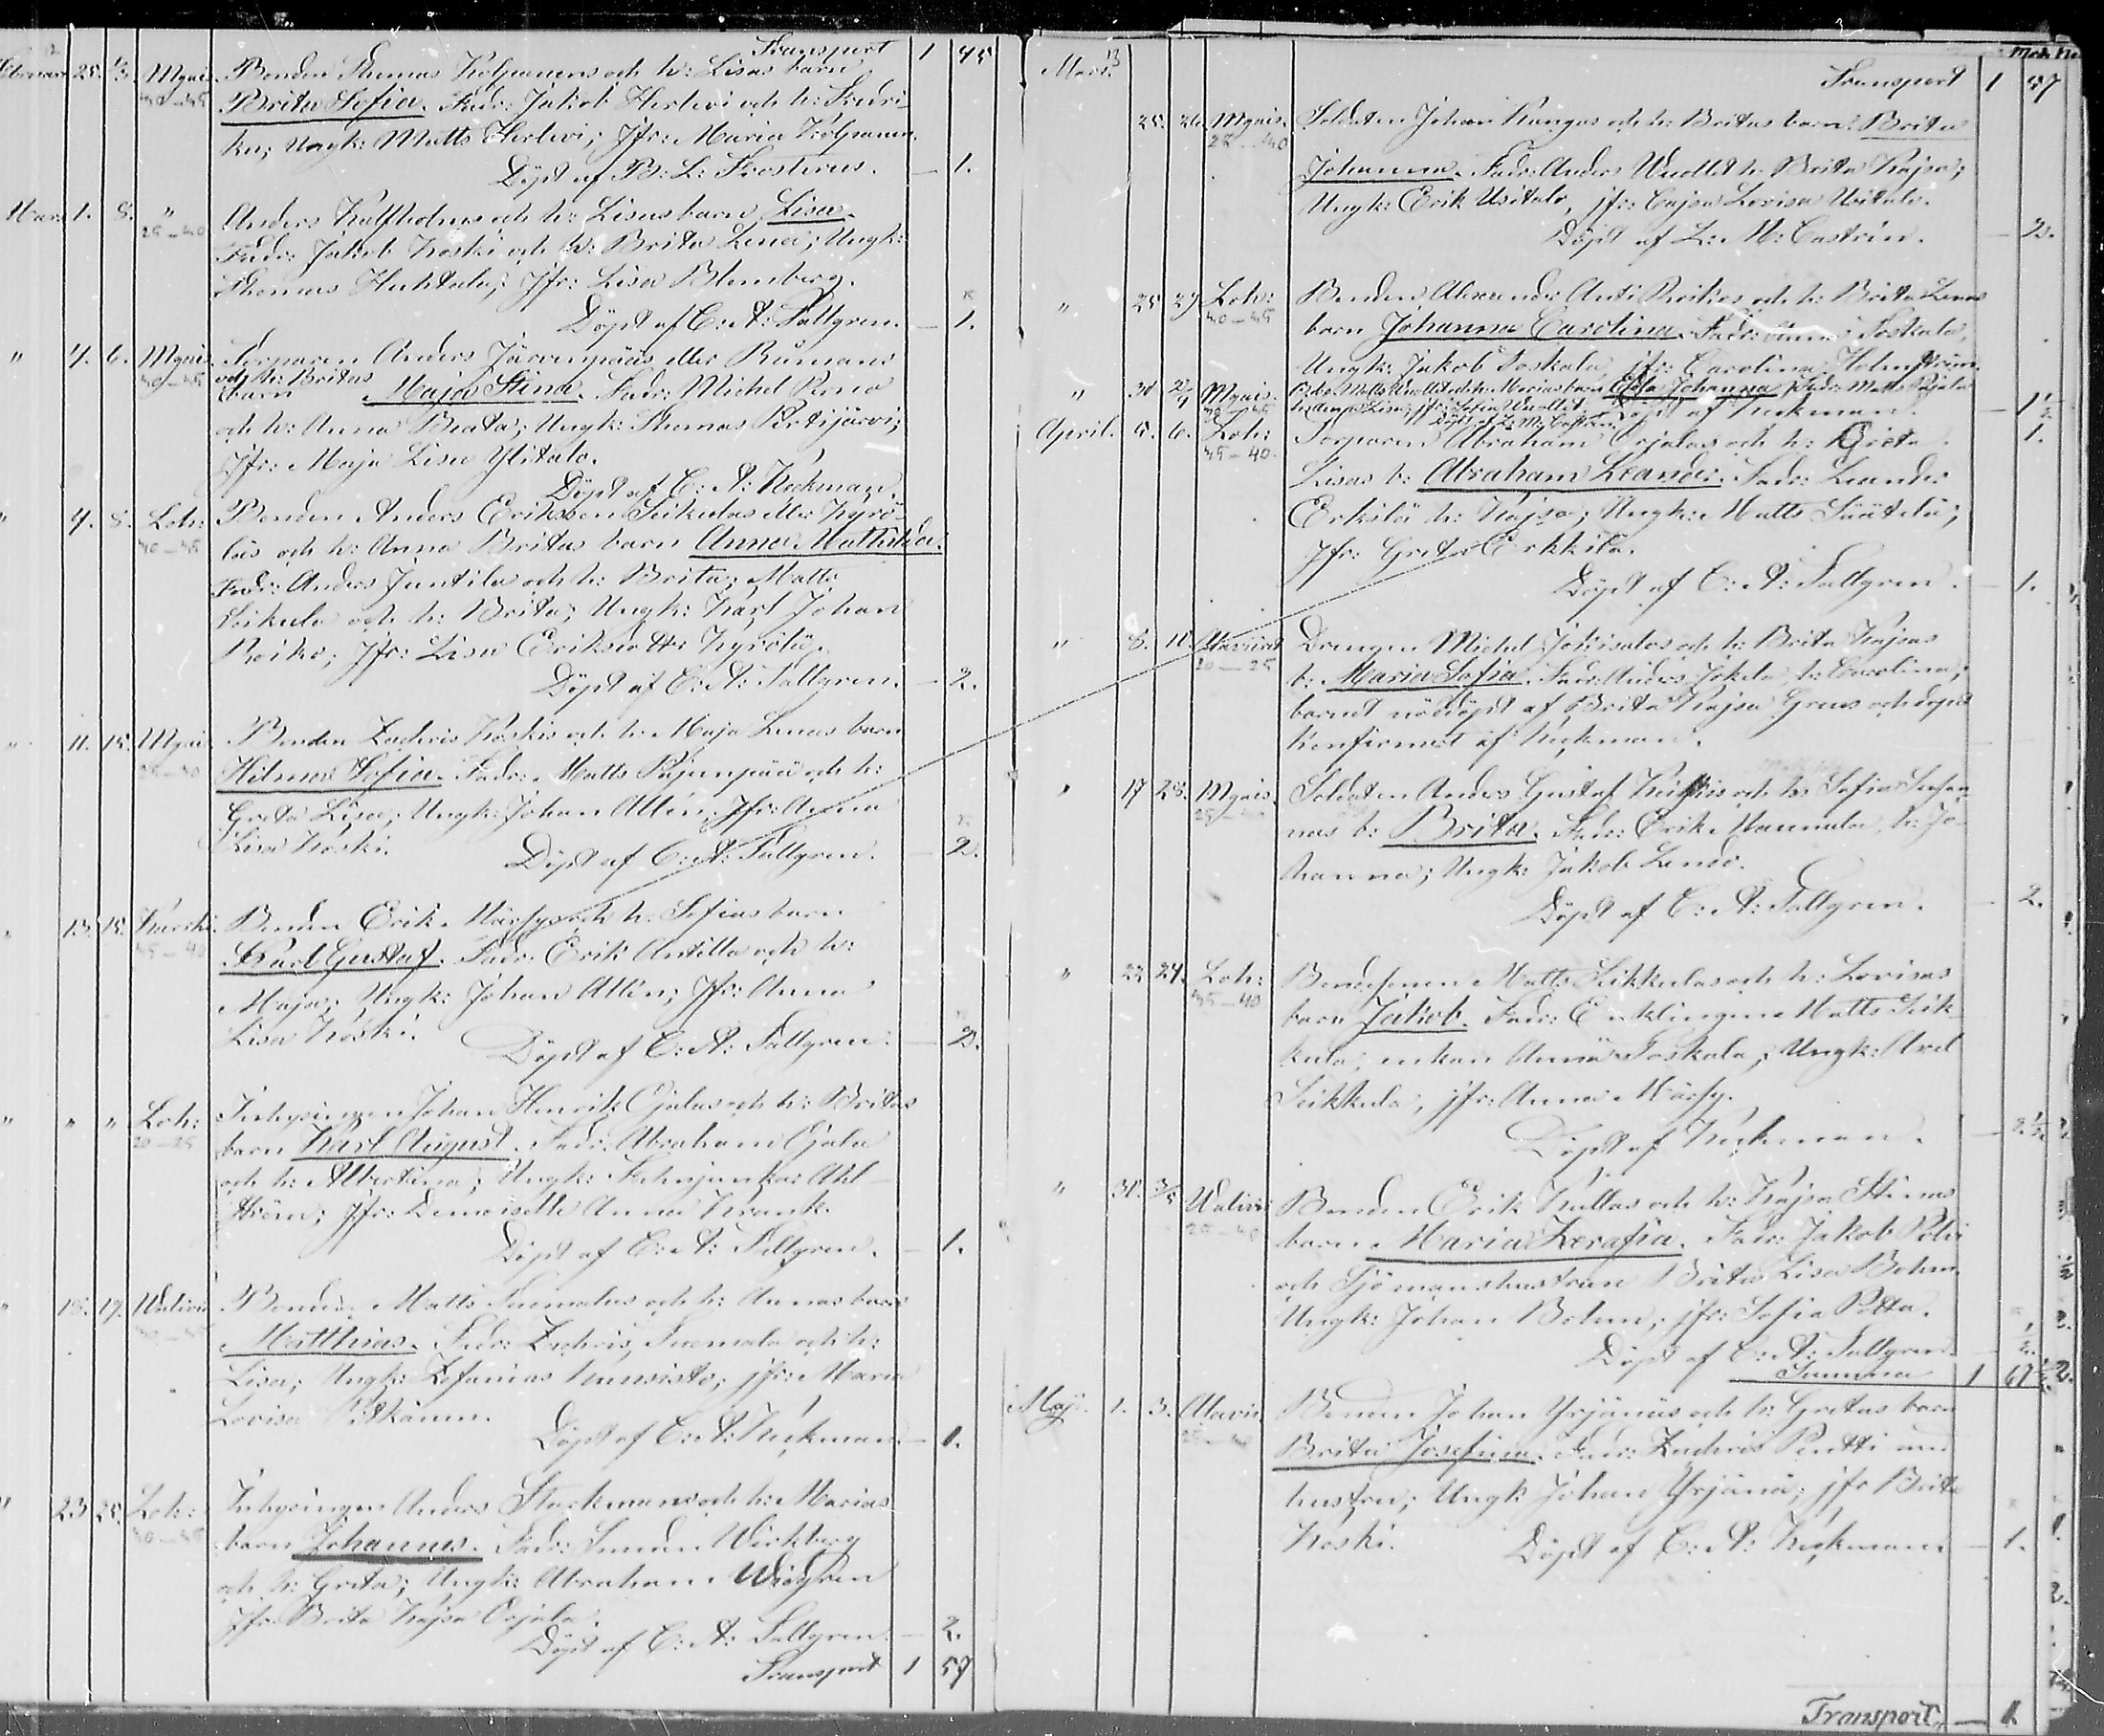 Transport 1 45
Februar 25. 1/3. Mgais. Bonden Thomas Kolpanens och h: Lisas barn
40-45 Brita Sofia. Fadr: Jakob Herlevi och h: Fredri-
ka; Ungk: Matts Herlevi; Jfr: Maria Kolpanen.
Döpt af B: L: Frosterus. — 1.
Mars 1. 8. " Anders Kalfholms och h: Lisas barn Lisa.
Fadr: Jakob Koski och h: Brita Lena; Ungk:
Thomas Huhtala; Jfr: Lisa Blomberg.
Döpt af C: A: Tallgren. — 1.
" 4. 6. Mgais. Torparen Anders Järvenpääs eller
40-45 och h: Britas
barn Maja Stina. Fadr: Michel
och h: Anna Beata; Ungk: Thomas Pertijärvi;
Jfr: Maja Lisa Ylitalo.
Döpt af C: A: Heckman.
" 4. 8. Loh: Bonden Anders Eriksson Seikulas eller Kyrö-
40-45 läs och h: Anna Britas barn Anna Mathilda.
Fadr: Anders Juntila och h: Brita; Matts
Seikula och h: Brita; Ungk: Karl Johan
Roiko; Jfr: Lisa Eriksdotter Kyrölä.
Döpt af C: A: Tallgren. — 2.
" 11. 15. Mgais Bonden Zachris Koskis och h: Maja Lenas barn
Hilma Sofia. Fadr: Matts Pajunpää och h:
Greta Lisa; Ungk: Johan Allén; Jfr: Anna
Lisa Koski. Döpt af C: A: Tallgren. — 2.
" 13. 15. Bonden Erik Märsys och h: Sofias barn
Karl Gustaf. Fadr: Erik Antilla och h:
Maja; Ungk: Johan Allén; Jfr: Anna
Lisa Koski. Döpt af C: A: Tallgren. — 2.
" " " Loh: Inhysingen Johan Henrik Ojalas och h: Britas
20-25 barn Karl August. Fadr: Abraham Ojala
och h: Albertina; Ungk: Ahl-
ström; Jfr: Demoiselle Anna Krank.
Döpt af C: A: Tallgren. — 1.
" 15. 17. Bonden Matts Suomalas och h: Annas barn
Matthias. Fadr: Zachris Suomala och h:
Lisa; Ungk: Zefanias Kunsisto; jfr: Maria
Lovisa Pitkänen.
Döpt af C: A: Heckman — 1.
" 23 25. Loh: Inhysingen Anders Stackmans och h: Marias
40-45 barn Johannes. Fadr: Wickberg
och h: Greta; Ungk: Abraham Widgren
Jfr: Brita Kajsa Ojala.
Döpt af C: A: Tallgren. — 2.
Transport 1 57
13
Mars. Transport 1 57
25. 26. Mgais. Soldaten Johan Kangas och h: Britas barn: Brita
Johanna. Fadr: Anders Wuollet h: Brita Kajsa;
Ungk: Erik Usitalo, jfr: Cajsa Lovisa Usitalo.
Döpt af L: M: Castrén. — 2.
" 25 27 Loh: Bonden Alexander Anti Roikos och h: Brita Lenas
40-45 barn Johanna Carolina. Fadr: Toskala,
Ungk: Jakob Toskala, jfr: Carolina Holmström.
" 31 2/4 Mgais. Matts Wuollets och h: Marias barn Johanna. Fadr: Matts
Lisa; jfr: Sofia Wuollet. Döpt af Heckman. — 1 1/2
Döpt af L: M: Castrén.
April. 5. 6. Loh: Torparen Abraham Orjalas och h: Greta 1.
35-40. Lisas b: Abraham Leander. Fadr: Leander
Erkkilä h: Kajsa; Ungk: Matts Säätelä;
Jfr: Greta Erkkilä.
Döpt af C: A: Tallgren. — 1.
" 8. 10. Drengen Michel Jokisalos och h: Brita Kajsas
20-25 b: Maria Sofia. Fadr: Anders Jokela, h: Carolina;
barnet nöddöpt af Brita Kajsa Grees och dopet
Konfirmerat af Heckman.
" 17 28. Mgais. Soldaten Anders Gustaf och h: Sofia Susan-
nas b: Brita. Fadr: Erik Mannula, h: Jo-
hanna; Ungk: Jakob Lenso.
Döpt af C: A: Tallgren. — 2.
" 22 24. Loh: Bondesonen Matts Seikkulas och h: Lovisas
35-40 barn Jakob. Fadr: Enklingen Matts Seik-
kula, enkan Anna Toskala; Ungk: Axel
Seikkula, jfr: Anna Märsy.
Döpt af Heckman. — 2 1/2
" 31. 3/5 Bonden Erik Kallas och h: Kajsa Stinas
barn Maria Serafia. Fadr: Jakob
och Sjömanshustrun Brita Lisa Bohm.
Ungk: Johan Bohm; jfr: Sofia Potta.
Döpt af C: A: Tallgren. — 1/2.
Summa 1 67 1/2
Maji. 1. 3. Alavis. Bonden Johan Yrjänäs och h: Gretas barn
Brita Josefina. Fadr: Zachris Pentti med
hustru; Ungk: Johan Yrjänä; jfr Brita
Koski. Döpt af C: A: Heckman. — 1.
Transport — 1.